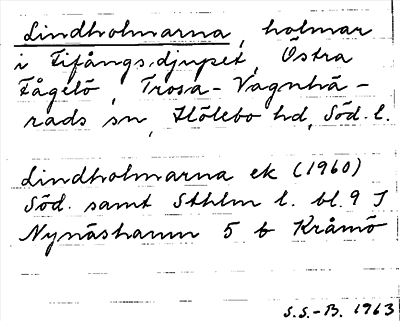 Lindholmarna, holmar
i Fifångsdjupet, Östra
Fågelö, Trosa-Vagnhä-
rads sn, Hölebo hd, Söd. l.
Lindholmarna ek (1960)
Söd. samt Sthlm l. bl. 9 I
Nynäshamn 5 b Kråmö
S.S.-B. 1963